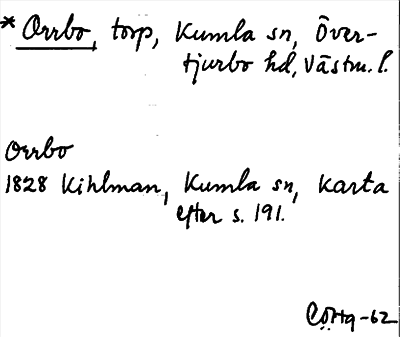 * Orrbo, torp, Kumla sn, Över-
tjurbo hd, Västm. l.
Orrbo
1828 Kihlman, Kumla sn, karta
efter s. 191.
CÖHg-62